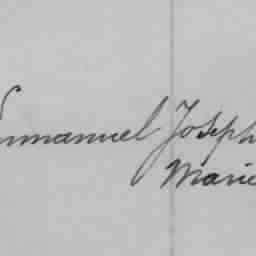 Emmanuel Joseph
Marie